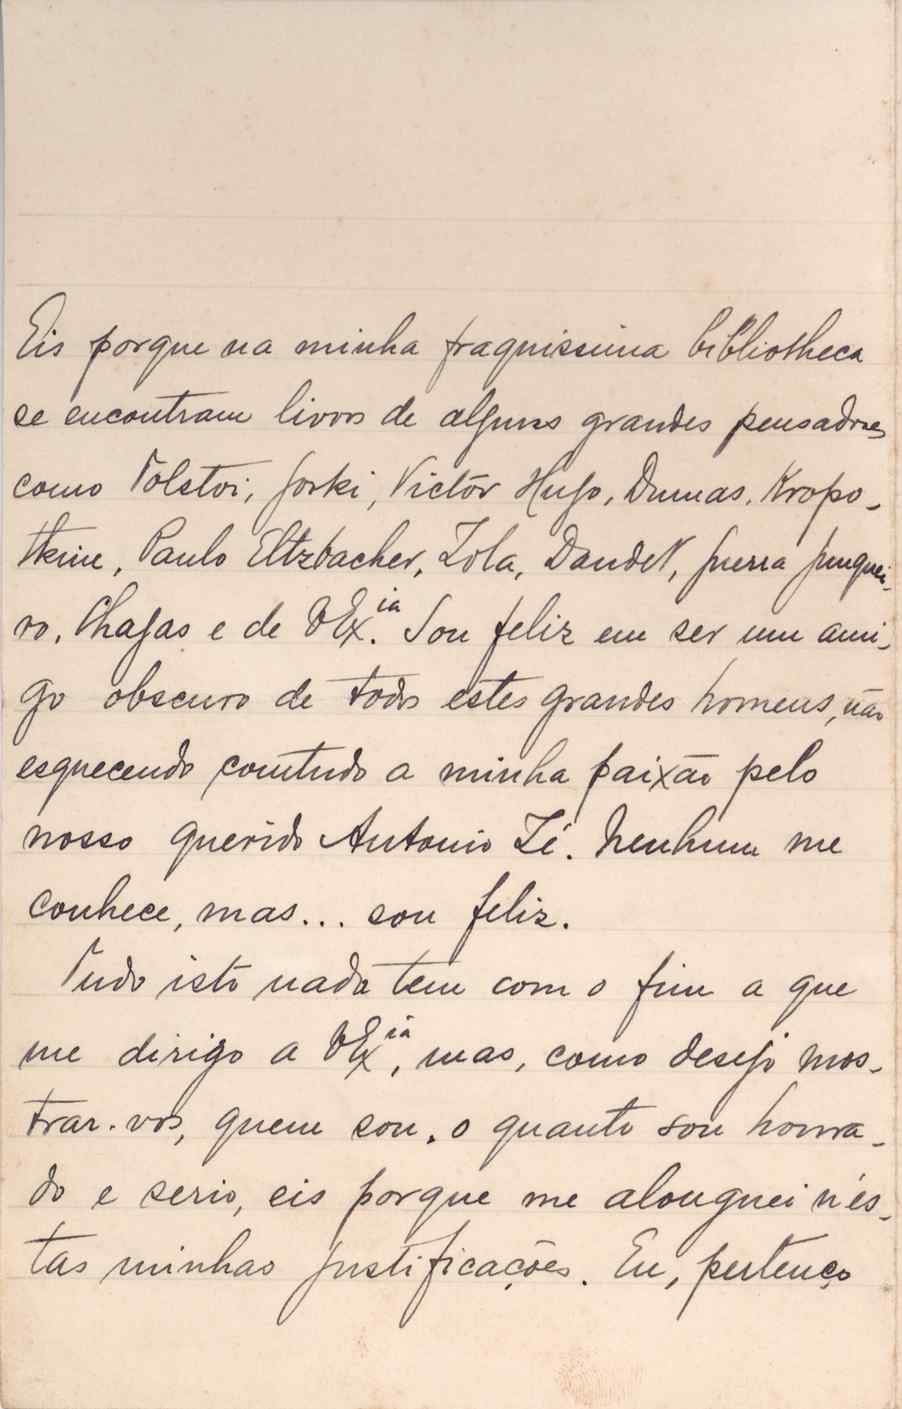 Eis porque na minha fraquissima bibliotheca
se encontram livros de alguns grandes pensadores
como Tolstoi, Gorki, Victôr Hugo, Dumas, Kropo-
tkine, Paulo Eltzbacher, Zola, Daudet, Guerra Junquei-
ro, Chagas e de VEx.ia Sou feliz em ser um ami-
go obscuro de todos estes grandes homens, não
esquecendo comtudo a minha paixão pelo
nosso querido Antonio Zé. Nenhum me
conhece, mas... sou feliz.
Tudo isto nada tem com o fim a que
me dirigo a VEx.ia, mas, como desejo mos-
trar-vos, quem sou, o quanto sou honra-
do e serio, eis porque me alonguei n'es-
tas minhas justificações. Eu, pertenço